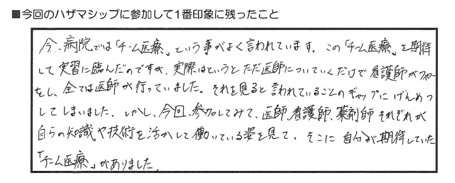 ■今回のハザマシップに参加して1番印象に残ったこと
今、病院では「チーム医療」という事がよく言われています。この「チーム医療」を期待
して実習に臨んだのですが、実際はというとただ医師についていくだけで看護師がフォロー
をし、全ては医師が行っていました。それを見ると言われていることのギャップにげんめつ
してしまいました。しかし、今回、参加してみて、医師、看護師、薬剤師 それぞれが
自らの知識や技術を活かして働いている姿を見て、そこに自分が期待していた
「チーム医療」がありました。